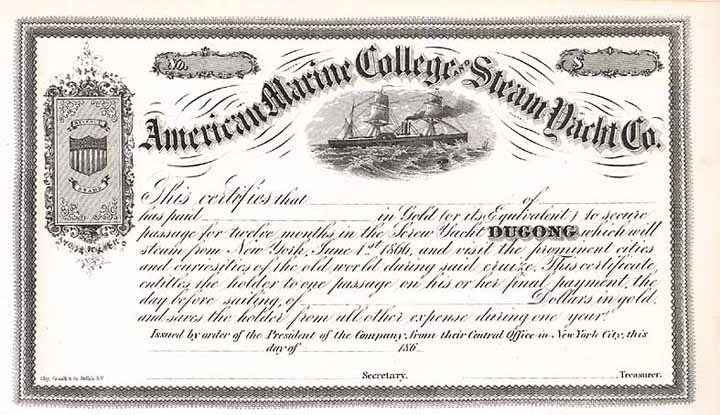 No.
$
American Marine College and Steam Yacht Co.
This certifies that of
has paid in Gold (or its Equivalent) to secure
passage for twelve months in the Screw Yacht DUGONG which will
steam from New York, June 1st 1866, and visit the prominent cities
and curiosities of the old world during said cruize. This certificate,
entitles the holder to one passage on his or her final payment, the
day before sailing, of Dollars in gold.
and saves the holder from all other expense during one year.
Issued by order of the President of the Company, from their Central Office in New York City, this
day of 186
Secretary.
Treasurer.